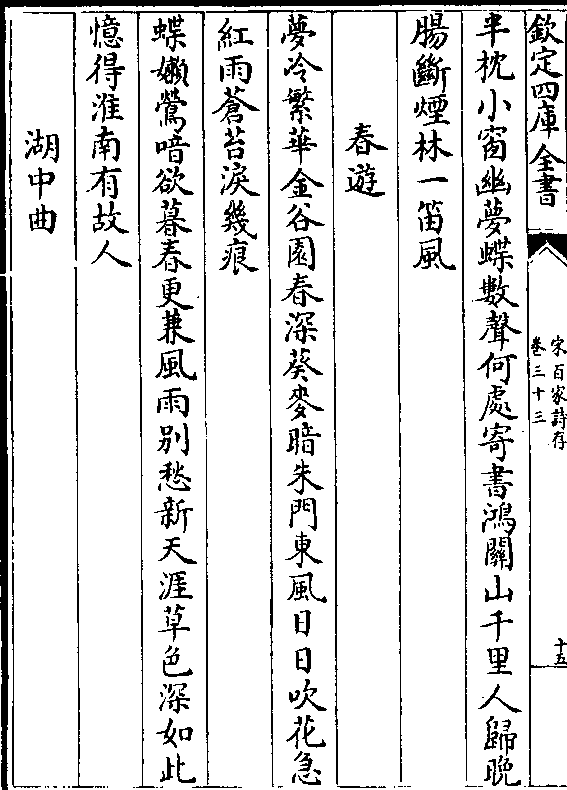 欽定四庫全書
宋百家詩存
卷三十三
十五
半枕小窗幽夢蝶數聲何處寄書鴻關山千里人歸晚
腸斷煙林一笛風
春遊
夢冷繁華金谷園春深葵麥暗朱門東風日日吹花急
紅雨蒼苔淚幾痕
蝶嬾鶯喑欲暮春更兼風雨别愁新天涯草色深如此
憶得淮南有故人
湖中曲